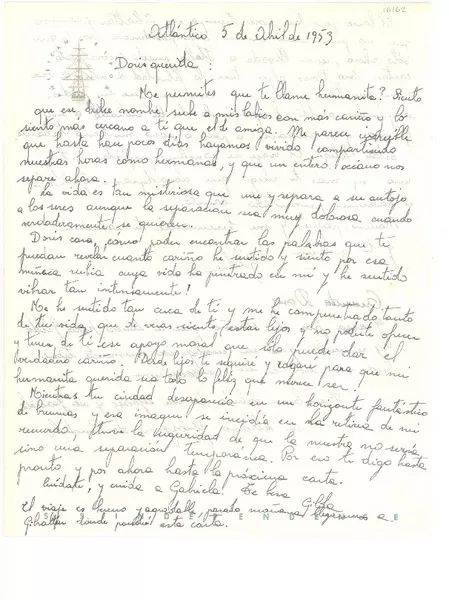 16162
Atlántico 5 de Abril de 1953
Doris querida:
Me permites que te llame hermanita? Siento
que ese dulce nombre sube a mis labios con más cariño y lo
siento más cercano a ti que el de amiga. Me parece increible
que hasta han pocos días hayamos vivido compartiendo
nuestras horas como hermanas, y que un entero océano nos
separe ahora.
La vida es tan misteriosa que une y separa a su antojo
a los seres aunque la separación sea muy dolorosa cuando
verdaderamente se quieren.
Doris cara, cómo poder encontrar las palabras que te
puedan revelar cuanto cariño he sentido y siento por esa
muñeca rubia cuya vida ha penetrado en mí y he sentido
vibrar tan intensamente!
Me he sentido tan cerca de tí y me he compenetrado tanto
de tu vida, que de veras siento estar lejos y no poderte ofrecer
y tener de tí ese apoyo moral que sólo puede dar el
verdadero cariño. Desde lejos te seguiré y rogaré para que mi
hermanita querida sea todo lo feliz que merece ser.
Mientras tu ciudad desaparecía en un horizonte fantástico
de brumas y esa imagen se incidía en la retina de mi
recuerdo, tuve la seguridad de que la nuestra no sería
sino una separación temporánea. Por eso te digo hasta
pronto y por ahora hasta la próxima carta.
Cuídate, y cuida a Gabriela. Te besa
Gilda
El viaje es bueno y agradable, pasado mañana llegaremos a
Gibaltar donde pondré esta carta.